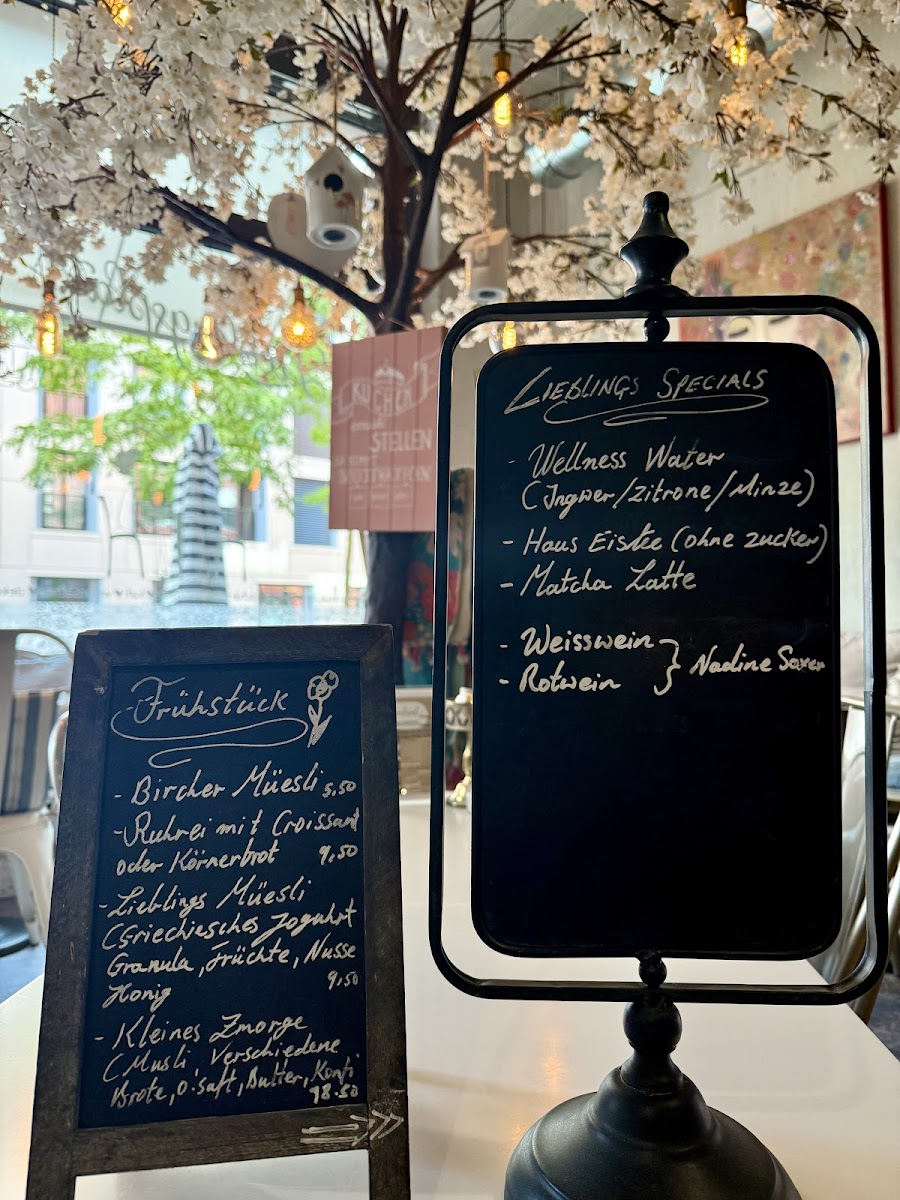 KUCHEN
STELLEN
Frühstück
- Bircher Müesli 5.50
- Ruhrei mit Croissant
oder Körnerbrot 9.50
- Lieblings Müesli
(Griechiesches Joguhrt
Granula, Früchte, Nusse
Honig 9.50
- Kleines Zmorge
(Musli Verschiedene
Brote, O'saft, Butter, Konfi
18.50
LIEBLINGS SPECIALS
- Wellness Water
(Ingwer/Zitrone/Minze)
- Haus Eistee (ohne zucker)
- Matcha Latte
- Weisswein
- Rotwein } Nadine Saxer